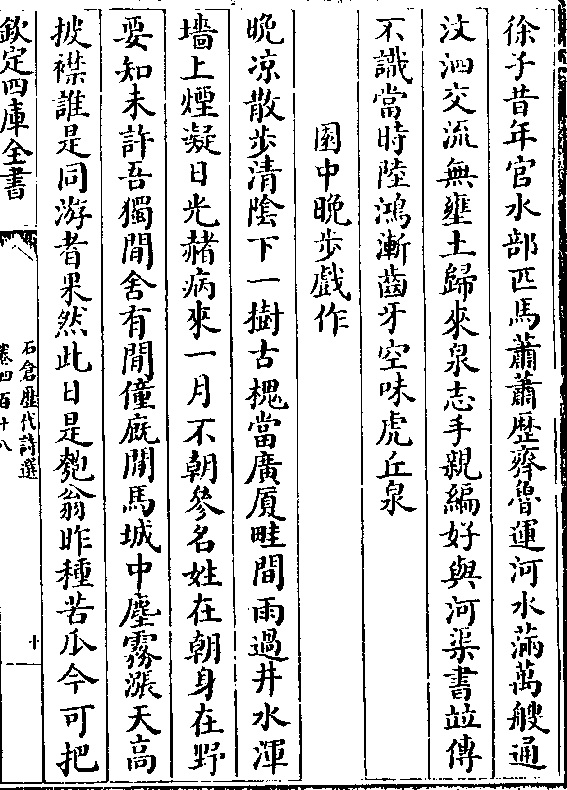 徐子昔年官水部匹馬蕭蕭歴齊魯運河水滿萬艘通
汶泗交流無壅土歸來泉志手親編好與河渠書竝傳
不識當時陸鴻漸齒牙空味虎丘泉
園中晚步戲作
晚凉散步清陰下一樹古槐當廣厦畦間雨過井水渾
墻上煙凝日光赭病來一月不朝參名姓在朝身在野
要知未許吾獨閒舍有閒僮廐閒馬城中塵霧漲天高
披襟誰是同游者果然此日是匏翁昨種苦瓜今可把
欽定四庫全書
石倉歴代詩選
卷四百十八
十